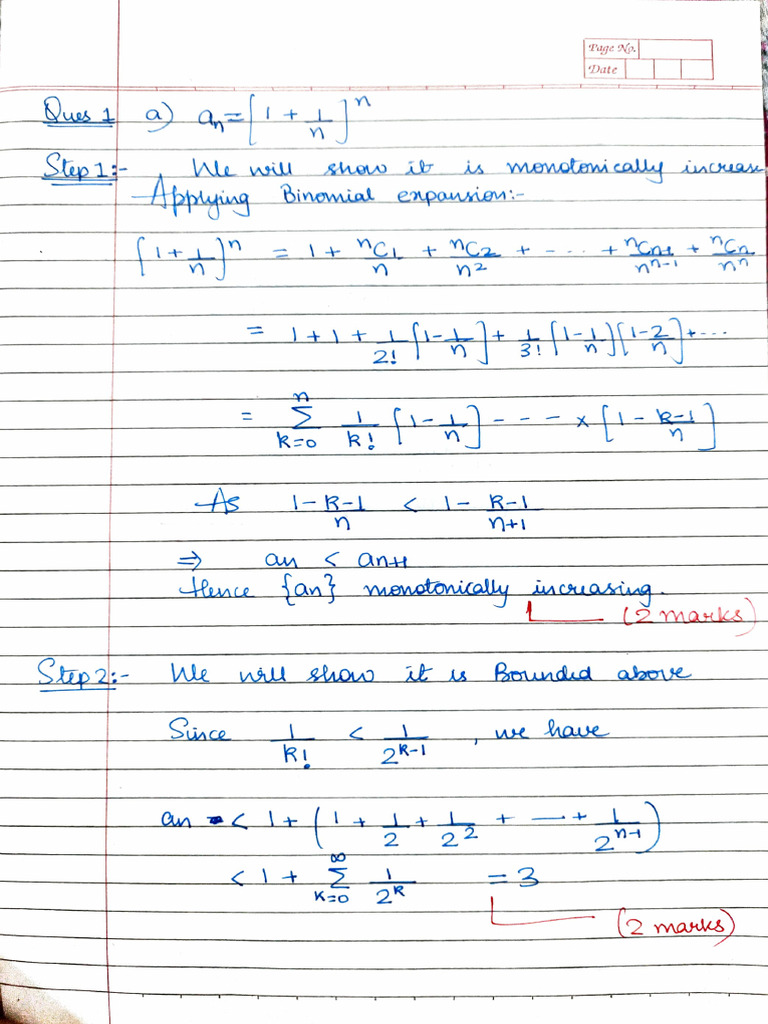 Page No.
Date
Ques 1 a) an = [1 + 1/n]^n
Step 1:- We will show it is monotonically increase
Applying Binomial expansion:-
[1 + 1/n]^n = 1 + nC1/n + nC2/n^2 + - - - - + nCn-1/n^(n-1) + nCn/n^n
= 1 + 1 + 1/2! [1 - 1/n] + 1/3! [1 - 1/n] [1 - 2/n] + ...
= n Σ k=0 1/k! [1 - 1/n] - - - - × [1 - k-1/n]
As 1 - k-1/n < 1 - k-1/n+1
⇒ an < an+1
Hence {an} monotonically increasing.
(2 marks)
Step 2:- We will show it is Bounded above
Since 1/k! < 1/2^(k-1) , we have
an < 1 + (1 + 1/2 + 1/2^2 + — + 1/2^(n-1))
< 1 + ∞ Σ k=0 1/2^k = 3
(2 marks)